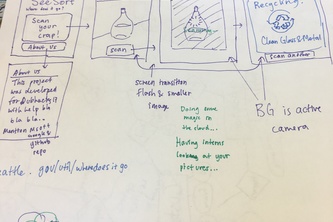 SeeSort
where does it go?
Scan
your
crap!
About us
scan
Recycling.
Clean Glass & Metal
Scan another
About us
This project
was developed
for
with help bla
bla bla...
Mention
github
repo
screen transition
Flash & smaller
image
Doing some
magic in
the cloud...
Having interns
looking at your
pictures...
BG is active
camera
eattle.gov/util/wheredoesitgo